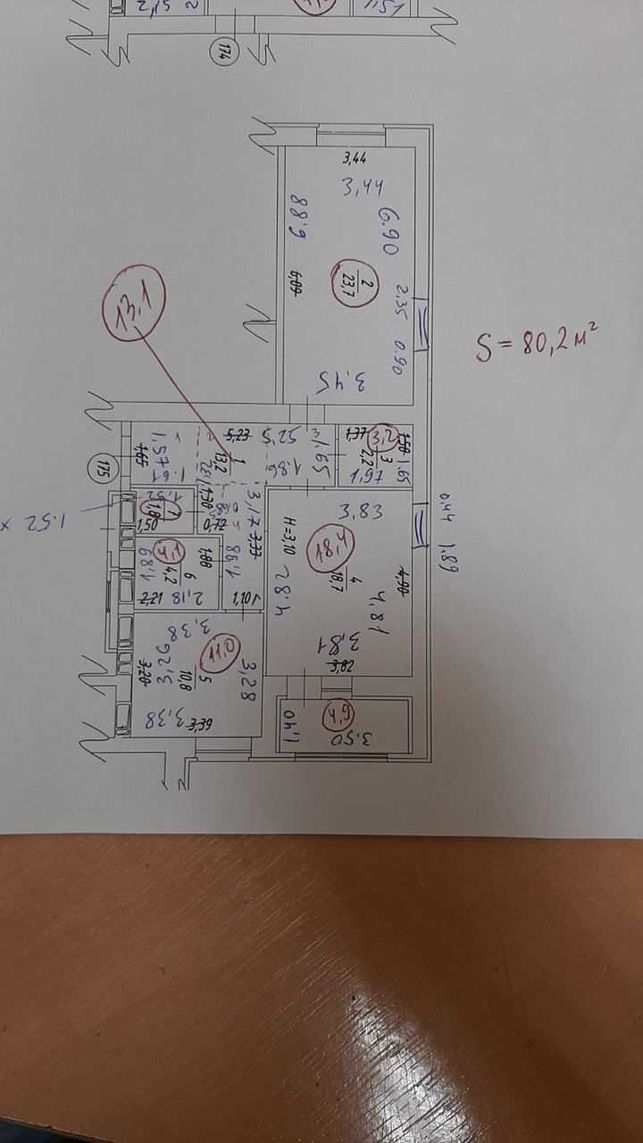 174
3,44
3,44
6.88
6.90
6,89
2
23,7
2.35
0.90
3.45
13.1
S = 80,2 м²
5,23
5.25
1
13,2
1.65
1.86
1,65
1.57
1.61
1,37
3,2
3
2,2
1,50
1.65
1.97
175
1.52
1,8
7
1,50
1.52 x
1,30
0,72
3.17
3,33
1.98
1,10
1,88
4,1
6
4,2
1.89
2,21
2.18
3.83
H=3,10
18,4
4
18,7
4,90
4.82
4.81
3.81
3,82
0.44
1.89
3.38
11,0
5
10,8
3.26
3,20
3.28
3.38
3,39
4,9
1,40
3.50